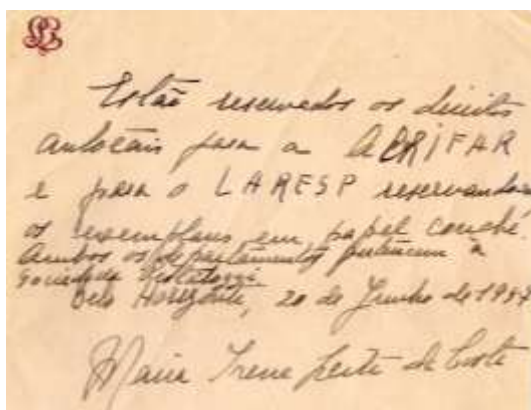 Estão reservados os direitos
autorais para a ACRIFAR
e para o LARESP reservando
os exemplares em papel couché.
Ambos os departamentos pertencem à
Sociedade Pestalozzi
Belo Horizonte, 20 de Junho de
Maria Irene Leite da Costa